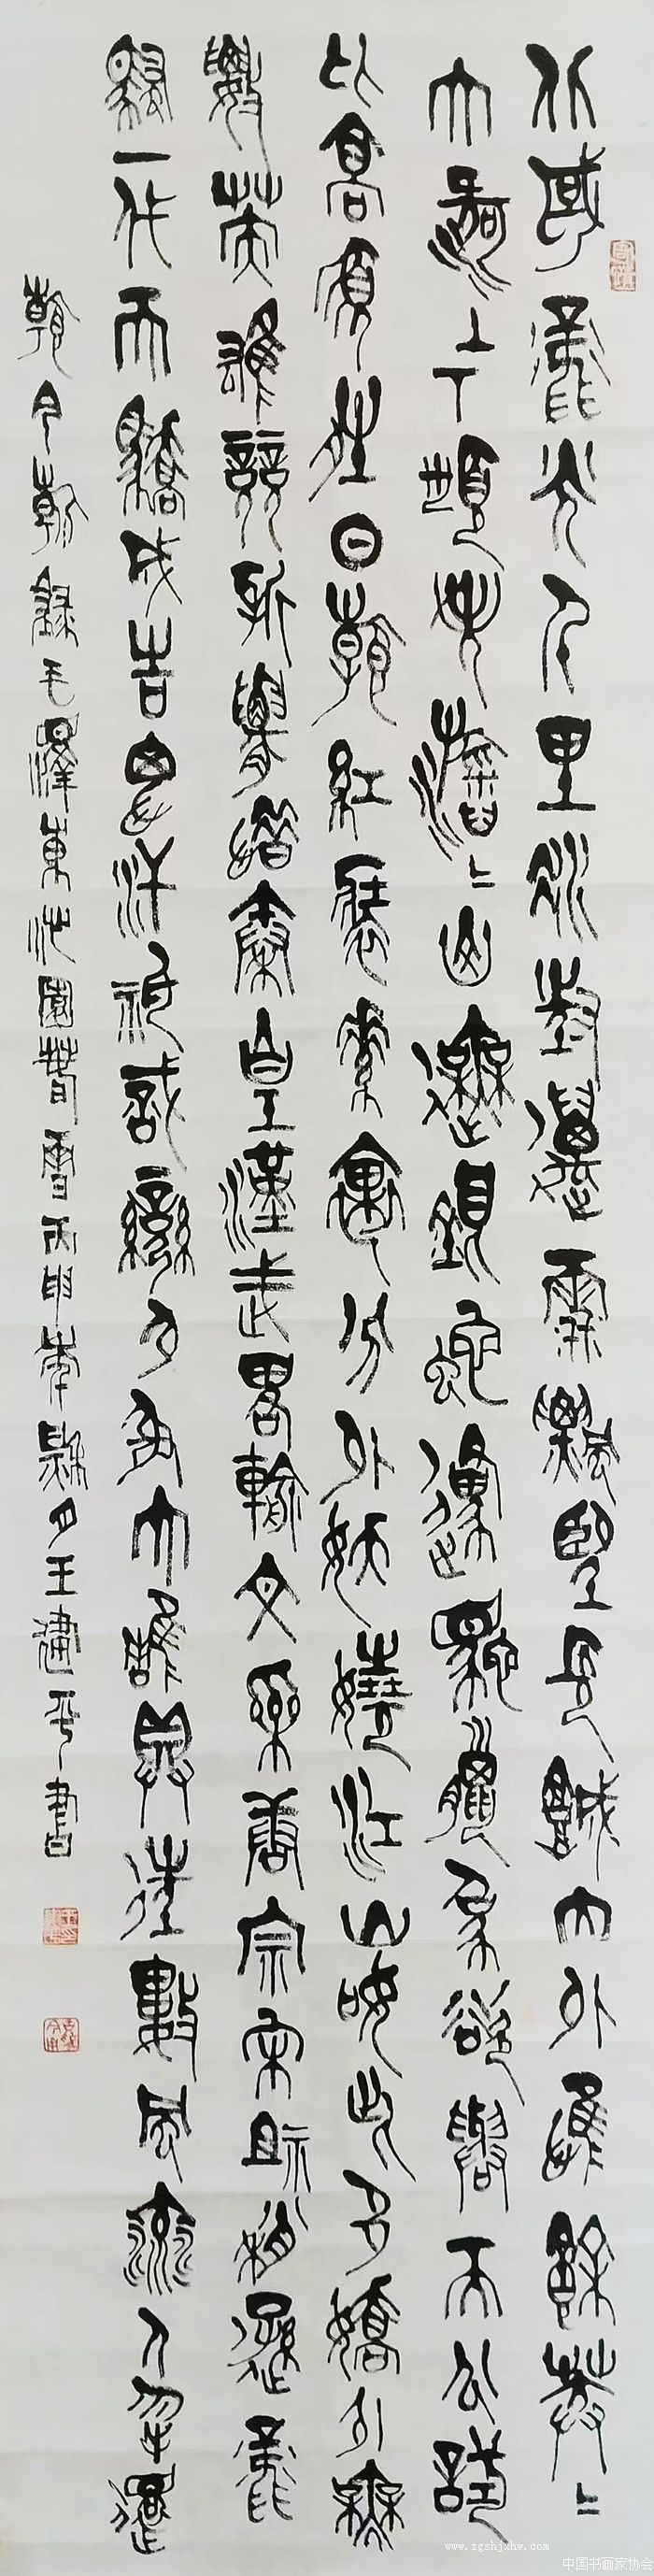 北國風光千里冰封萬雪飄望長城內外惟餘莽二
大河上下頓失滔二山舞銀蛇原馳臘象欲與天公試
比高須晴日看紅裝素裹分外妖嬈江山如此多嬌引無
數英雄競折腰惜秦皇漢武略輸文采唐宗宋祖稍遜風
騷一代天驕成吉思汗祇識彎弓射大雕俱往數風流人物還
看今朝錄毛澤東沁園春雪丙申年月王建平書
www.zgshjxhw.com
中国书画家协会